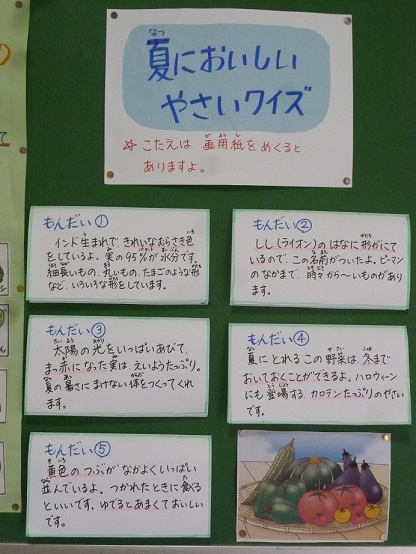 夏においしい
やさいクイズ
☆ こたえは 画用紙を めくると
ありますよ。
もんだい①
インド生まれで、きれいなむらさき色
をしているよ。実の95%が水分です。
細長いもの、丸いもの、たまごのような形
など、いろいろな形をしています。
もんだい②
しし(ライオン)の はなに 形がにて
いるので、この名前がついたよ。ピーマン
のなかまで、時々 から〜いものがあり
ます。
もんだい③
太陽の光をいっぱいあびて、
まっ赤になった実は、えいようたっぷり。
夏の暑さにまけない体をつくってくれ
ます。
もんだい④
夏にとれる この野菜は、冬まで
おいておくことができるよ。ハロウィーン
にも登場する、カロテンたっぷりのやさい
です。
もんだい⑤
黄色の つぶが なかよく いっぱい
並んでいるよ。つかれたときに食べる
といいです。ゆでるとあまくておいしい
です。